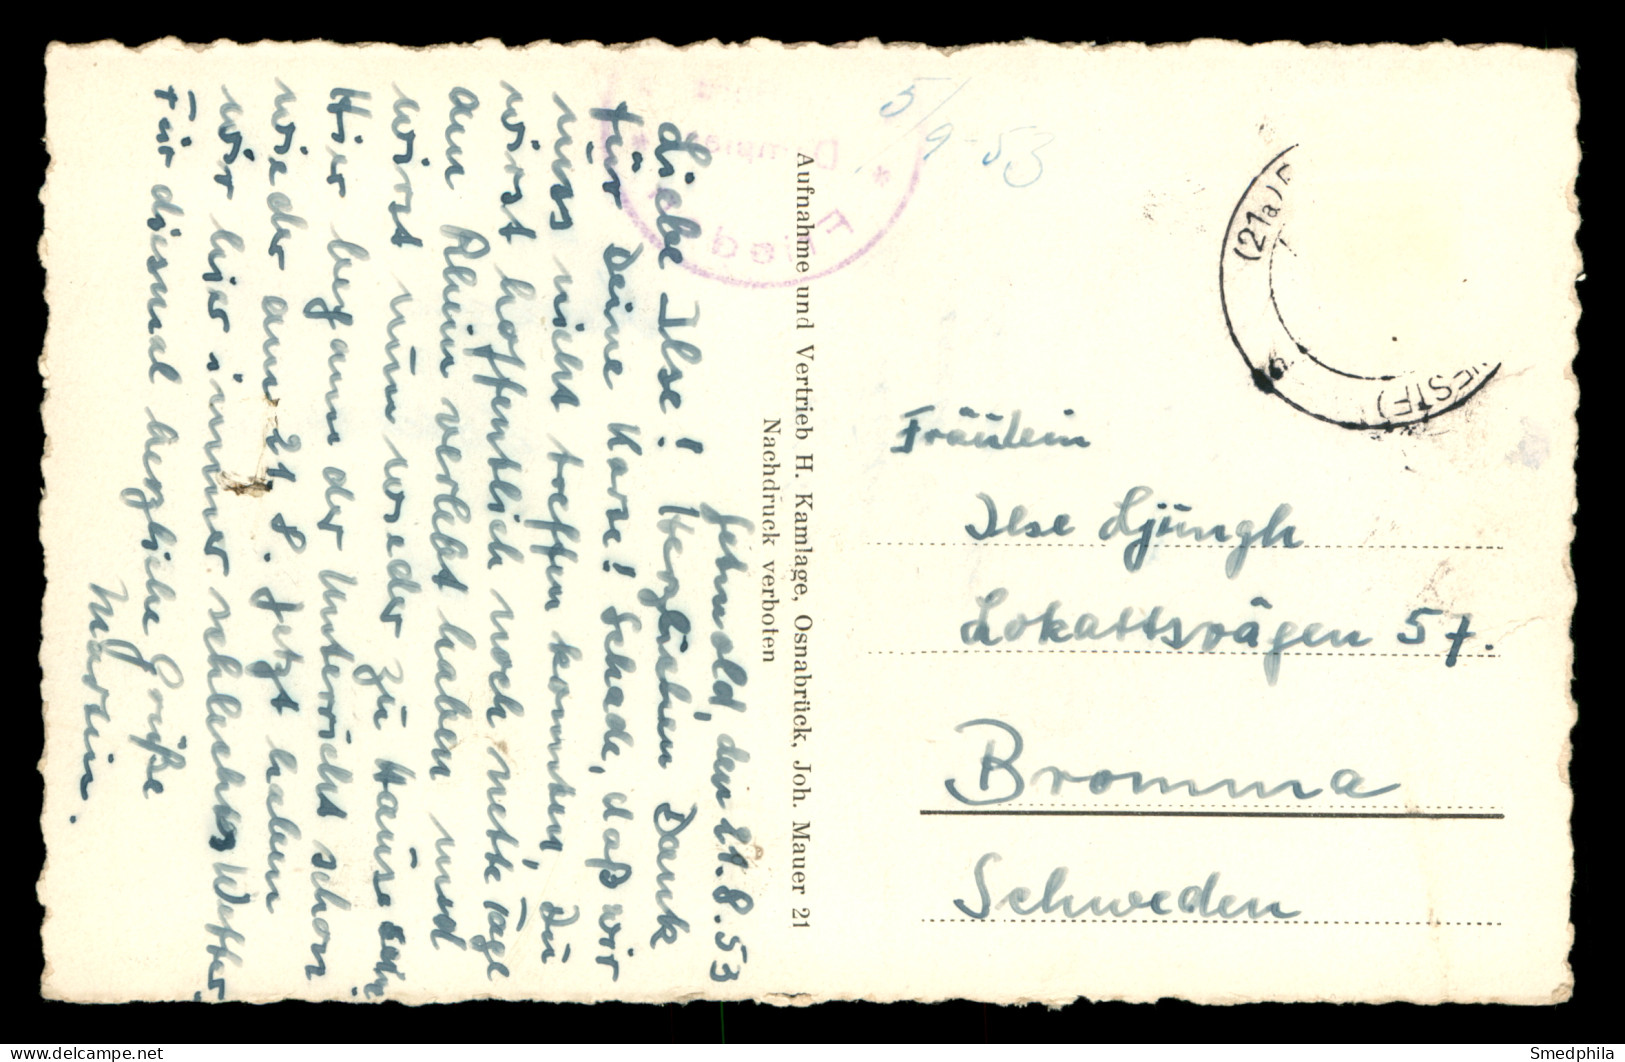 Jetmold, den 29.8.53
Liebe Ilse! Herzlichen Dank
für Deine Karte! Schade, daß wir
uns nicht treffen konnten, Du
wirst hoffentlich noch nette Tage
am Rhein verlebt haben und
wirst nun wieder zu Hause sein.
Hier begann der Unterricht schon
wieder am 21.8. Jetzt haben
wir hier immer schlechtes Wetter.
Für diesmal herzliche Grüße
Aufnahme und Vertrieb H. Kamlage, Osnabrück, Joh. Mauer 21
Nachdruck verboten
5/9-53
(21a)
WESTF)
Fräulein
Ilse Ljungh
Lokattsvägen 57.
Bromma
Schweden
Smedphila